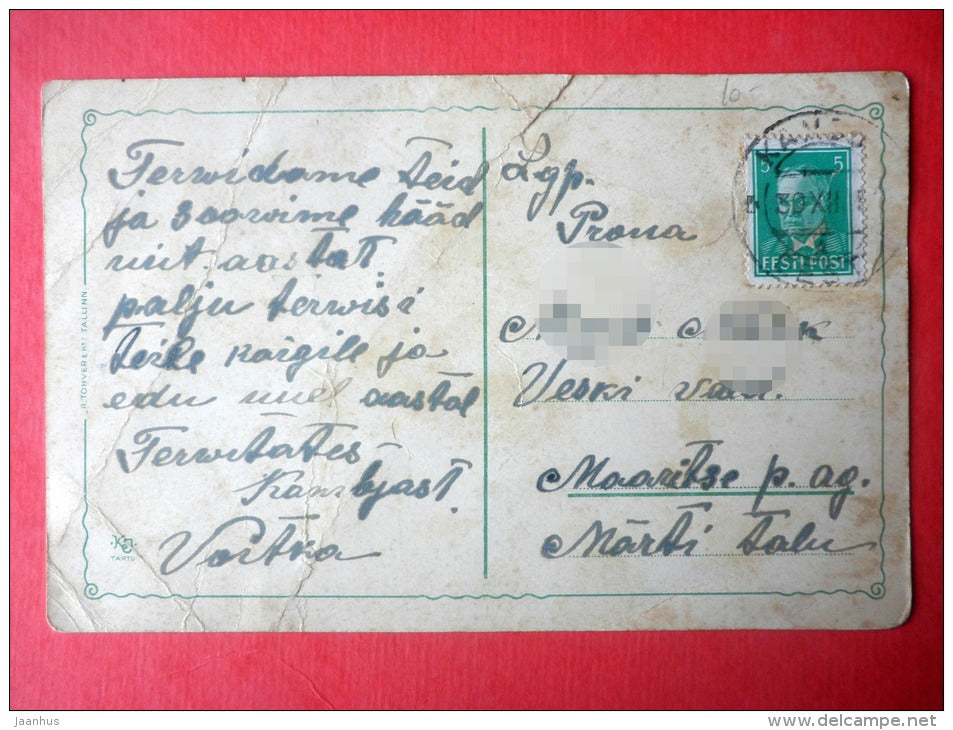 Terwidame teid
ja soowime hääd
uut aastat
palju terwisi
teile kõigile ja
edu uuel aastal
Terwitates
Kambjast
Voitka
Lgp.
Prona
Veski
Maaritse p. ag.
Märti talu
10-
5 5
EESTI POST
30 XII
R. TOHVER & KO. TALLINN
TARTU
Jaanhus
www.delcampe.net